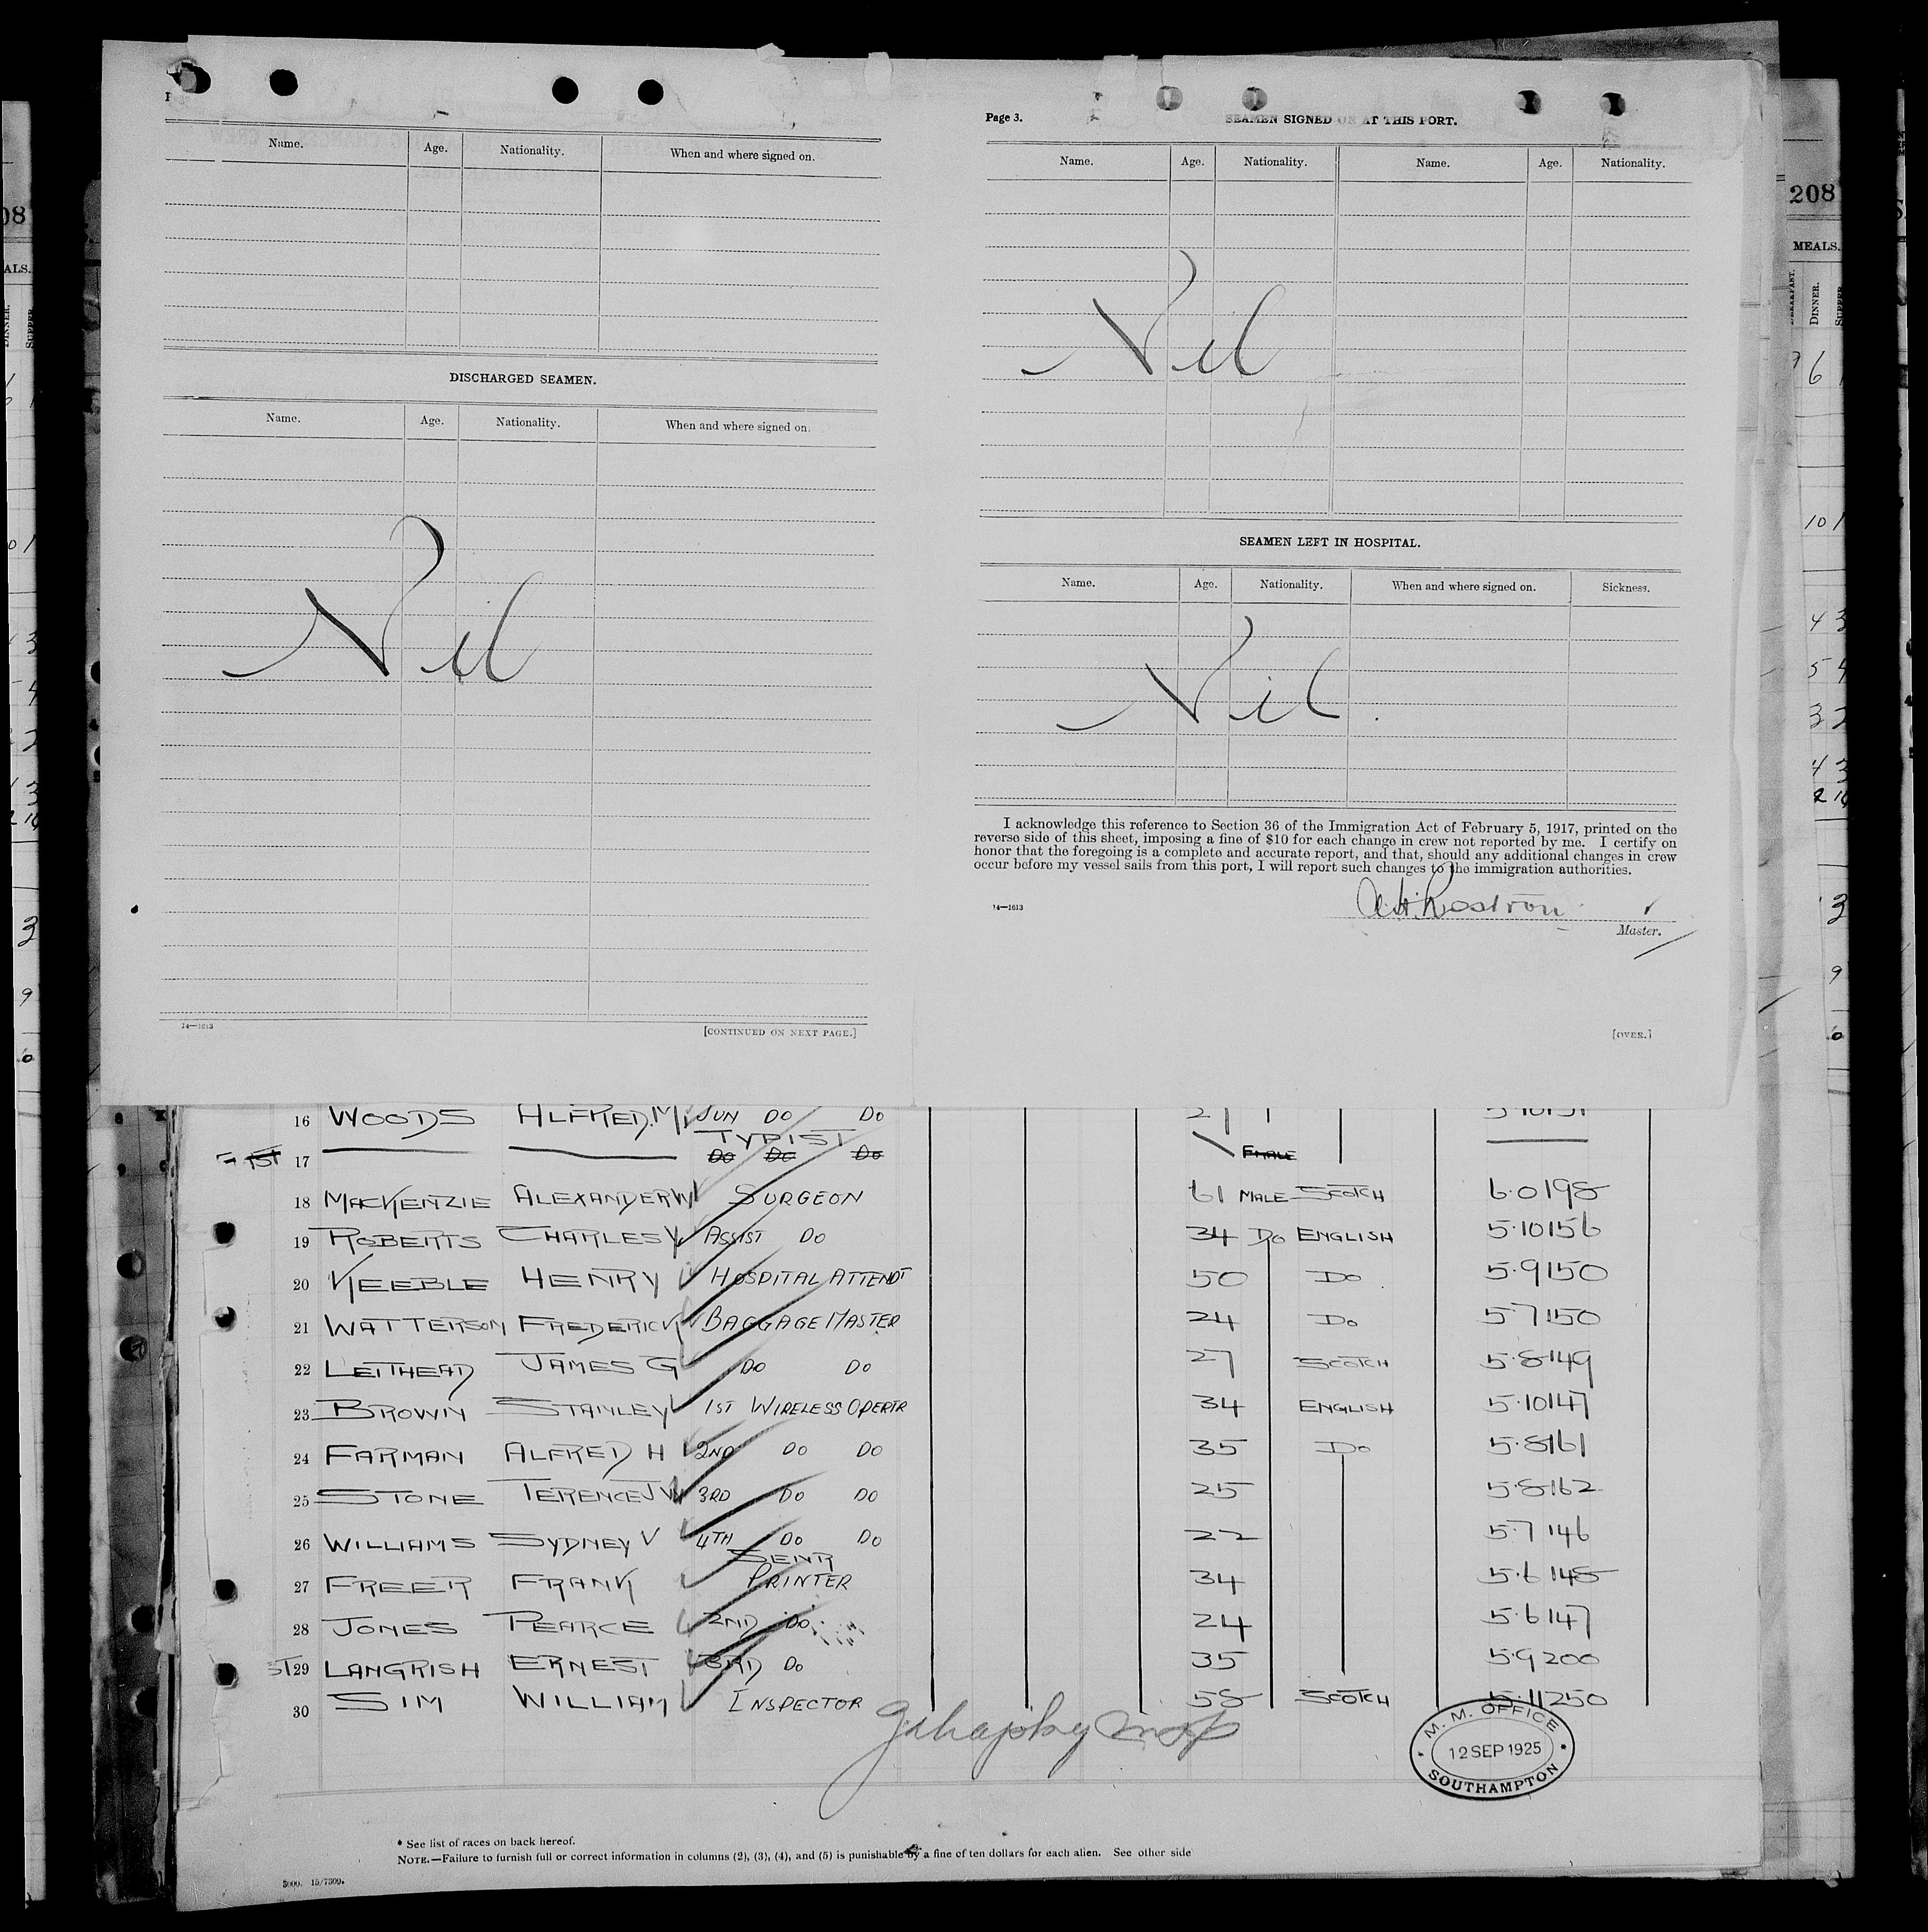 Name. Age. Nationality. When and where signed on.
DISCHARGED SEAMEN.
Name. Age. Nationality. When and where signed on.
Nil
14—1613
[CONTINUED ON NEXT PAGE.]
Page 3.
SEAMEN SIGNED ON AT THIS PORT.
Name. Age. Nationality. Name. Age. Nationality.
Nil
SEAMEN LEFT IN HOSPITAL.
Name. Age. Nationality. When and where signed on. Sickness.
Nil.
I acknowledge this reference to Section 36 of the Immigration Act of February 5, 1917, printed on the
reverse side of this sheet, imposing a fine of $10 for each change in crew not reported by me. I certify on
honor that the foregoing is a complete and accurate report, and that, should any additional changes in crew
occur before my vessel sails from this port, I will report such changes to the immigration authorities.
A.H. Rostron
Master.
14—1613
[OVER.]
16 WOODS ALFRED.M. JUN DO DO
TYPIST
17 DO DO DO
18 MACKENZIE ALEXANDER W SURGEON 61 MALE SCOTCH 6.0 198
19 ROBERTS CHARLES V ASSIST DO 34 DO ENGLISH 5.10 156
20 KEEBLE HENRY HOSPITAL ATTENDT 50 DO 5.9 150
21 WATTERSON FREDERICK BAGGAGE MASTER 24 DO 5.7 150
22 LEITHEAD JAMES G DO DO 27 SCOTCH 5.8 149
23 BROWN STANLEY 1ST WIRELESS OPERTR 34 ENGLISH 5.10 147
24 FARMAN ALFRED H 2ND DO DO 35 DO 5.8 161
25 STONE TERENCE J W 3RD DO DO 25 5.8 162
26 WILLIAMS SYDNEY V 4TH DO DO 22 5.7 146
SENR
27 FREER FRANK PRINTER 34 5.6 148
28 JONES PEARCE 2ND DO 24 5.6 147
29 LANGRISH ERNEST 3RD DO 35 5.9 200
30 SIM WILLIAM INSPECTOR 58 SCOTCH 5.11 250
M. M. OFFICE
12 SEP 1925
SOUTHAMPTON
* See list of races on back hereof.
NOTE.—Failure to furnish full or correct information in columns (2), (3), (4), and (5) is punishable by a fine of ten dollars for each alien. See other side
15/7309.
208
MEALS.
DINNER.
SUPPER